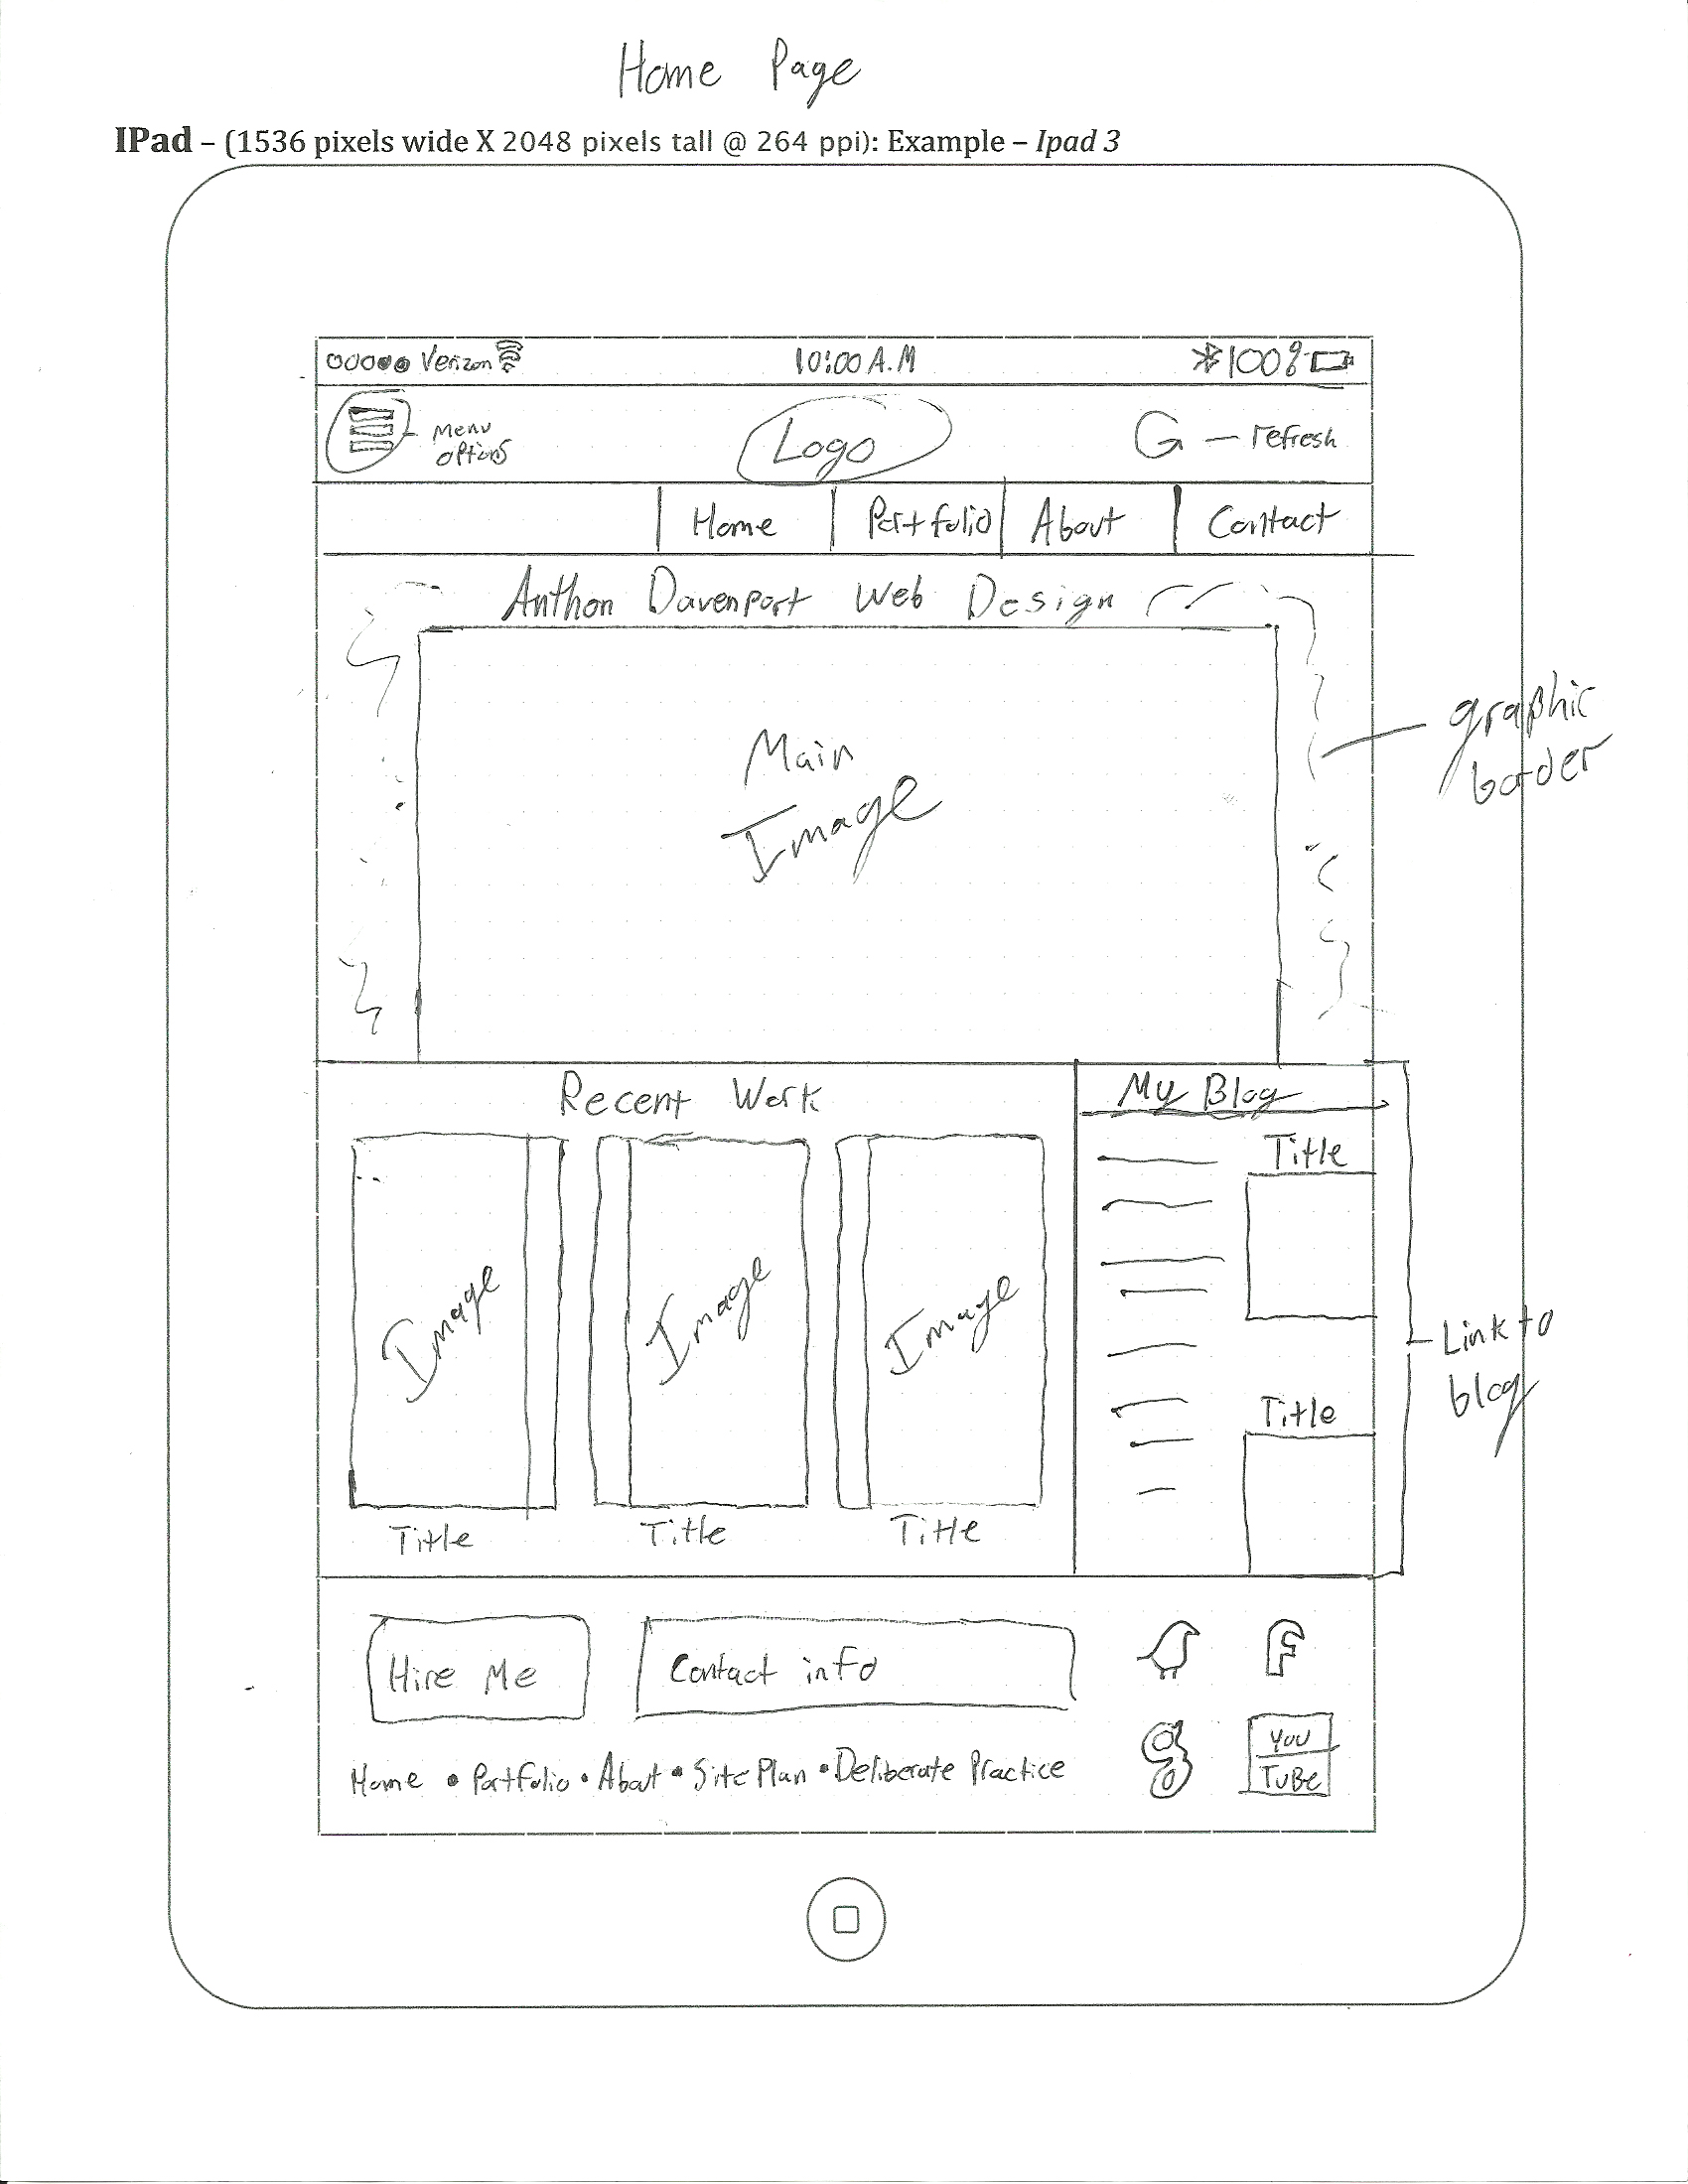 Home Page
IPad – (1536 pixels wide X 2048 pixels tall @ 264 ppi): Example – Ipad 3
Verizon 10:00 A.M 100%
Menu options Logo G — refresh
Home Portfolio About Contact
Anthon Davenport Web Design
Main
Image
graphic
border
Recent Work
Image Image Image
Title Title Title
My Blog
Title
Title
Link to
blog
Hire Me Contact info F
g You
Tube
Home • Portfolio • About • Site Plan • Deliberate Practice